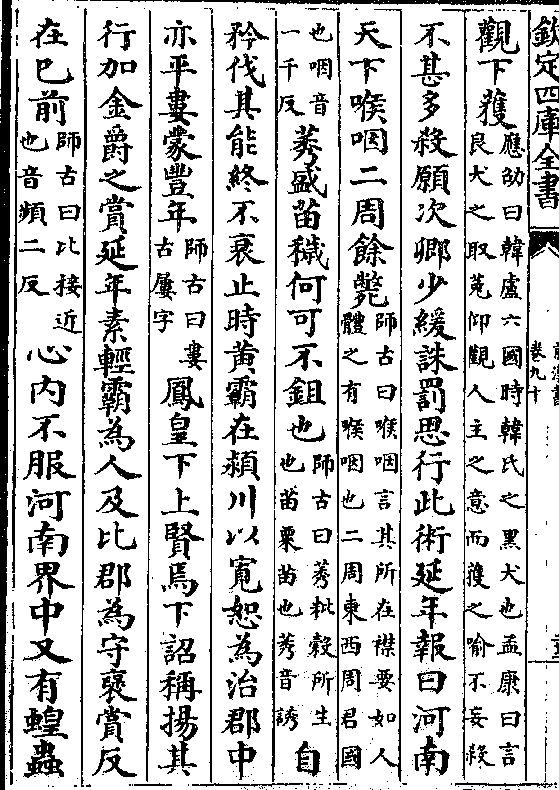 欽定四庫全書
卷九十
觀下獲應劭曰韓盧六國時韓氏之黑犬也孟康曰言良犬之取菟仰觀人主之意而獲之喻不妄殺
不甚多殺願次卿少緩誅罰思行此術延年報曰河南
天下喉咽二周餘斃師古曰喉咽言其所在襟要如人體之有喉咽也二周東西周君國
也咽音一千反莠盛苗穢何可不鉏也師古曰莠粃穀所生也苗粟苗也莠音誘自
矜伐其能終不衰止時黄霸在潁川以寛恕為治郡中
亦平婁蒙豐年師古曰婁古屢字鳳皇下上賢焉下詔稱揚其
行加金爵之賞延年素輕霸為人及比郡為守襃賞反
在已前師古曰比接近也音頻二反心内不服河南界中又有蝗蟲